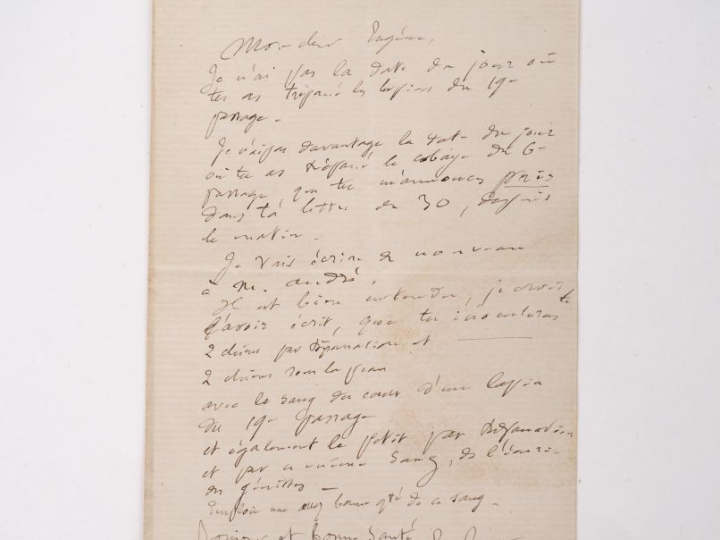 Mon cher Eugène,
Je n'ai pas la date du jour où
tu as trépané les lapins du 19e
passage.
Je n'ai pas davantage la date du jour
où tu as trépané le cobaye du 6e
passage que tu m'annonces pris
dans ta lettre du 30, depuis
le matin.
Je vais écrire de nouveau
à M. André.
Il est bien entendu, je crois
t'avoir écrit, que tu inoculeras
2 chiens par trépanation et
2 chiens sous la peau
avec le sang du cœur d'un lapin
du 19e passage
et également le petit par trépanation
et par ce même sang, de l'
des génisses
Emploie une assez bonne qté de ce sang.
Bonjour et bonne santé